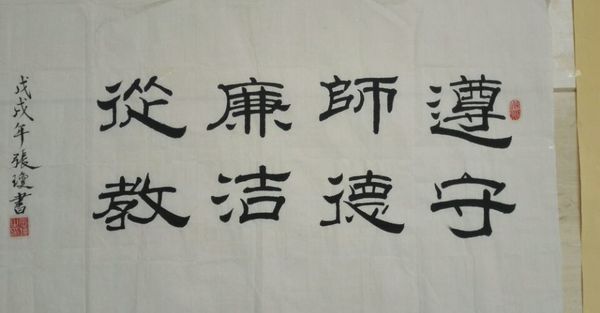 遵守
師德
廉洁
從教
戊戌年張瓊書